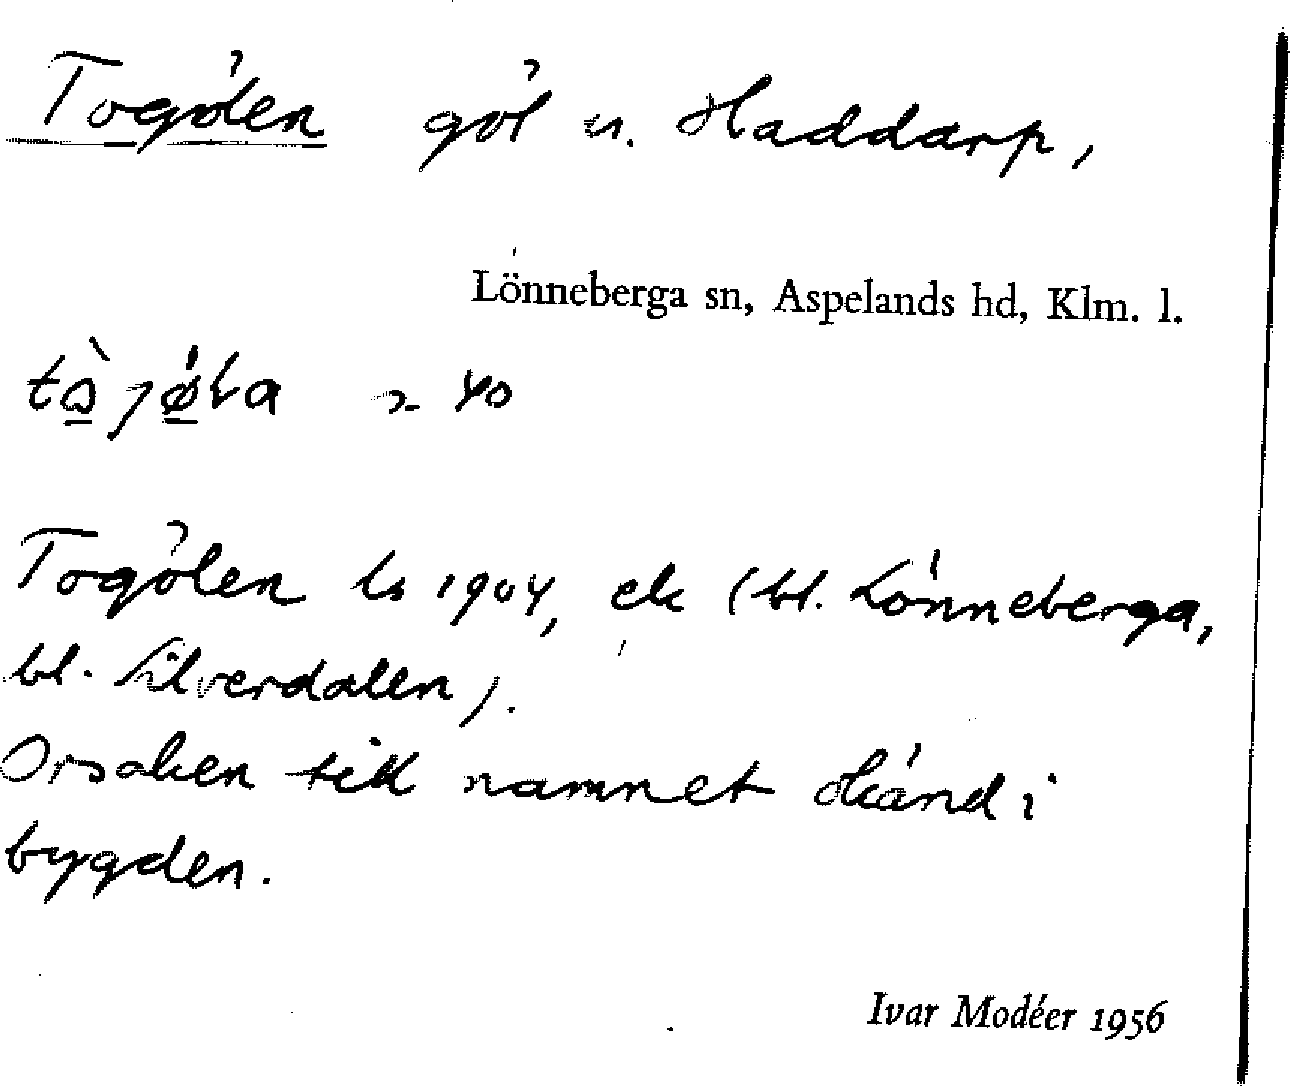 Togölen göl u. Haddarp,
Lönneberga sn, Aspelands hd, Klm. l.
40
Togölen ls 1904, ek (bl. Lönneberga,
bl. Silverdalen).
Orsaken till namnet okänd i
bygden.
Ivar Modéer 1956